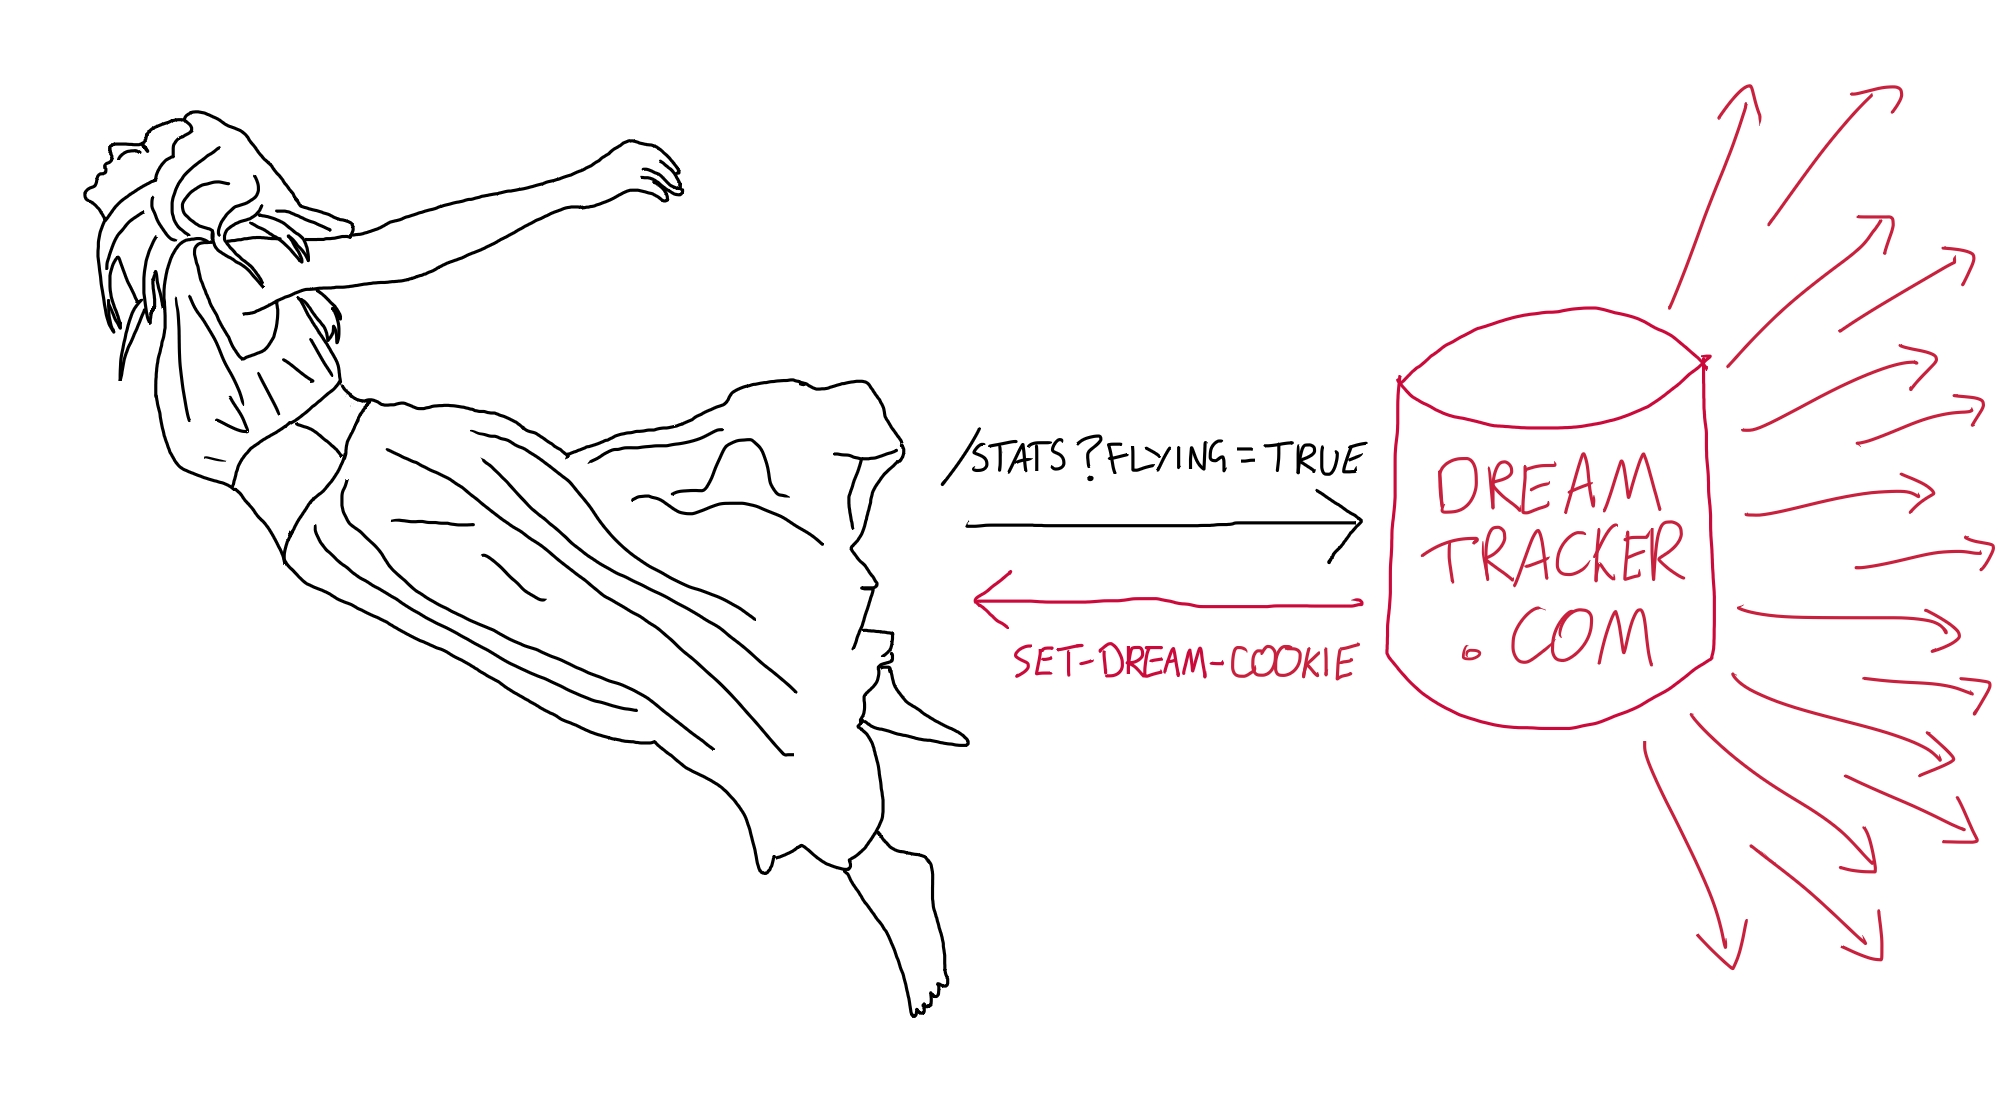 /STATS?FLYING=TRUE
SET-DREAM-COOKIE
DREAM
TRACKER
.COM